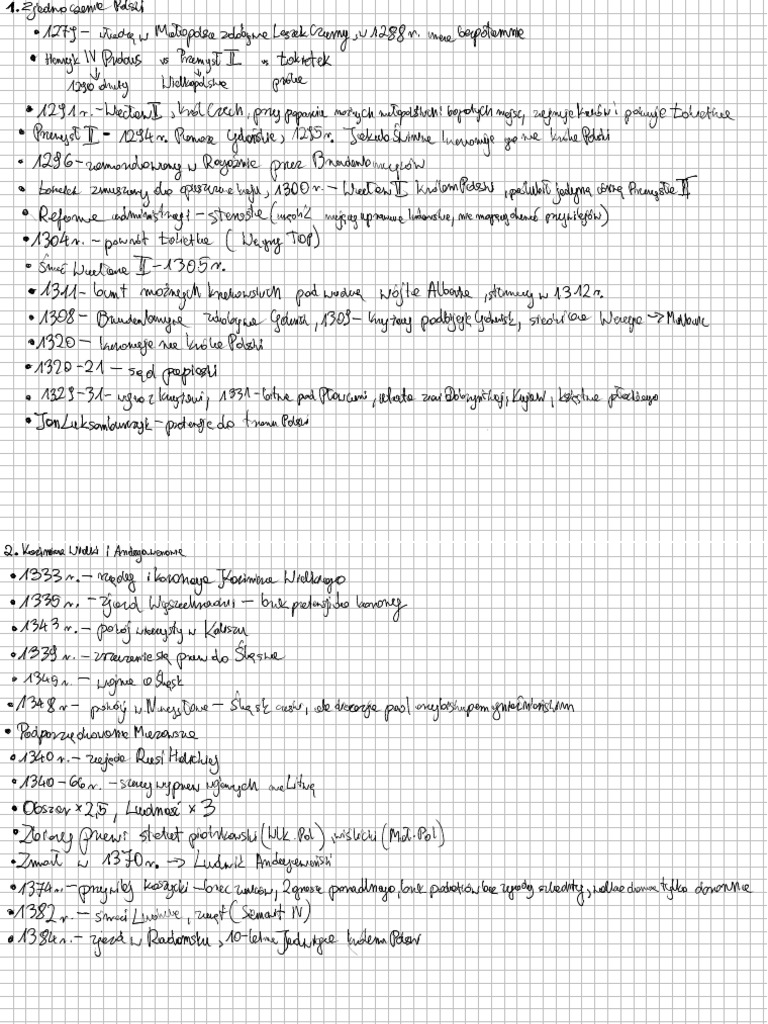 1. Zjednoczenie Polski
• 1279 – władzę w Małopolsce zdobywa Leszek Czarny, w 1288 r. umiera bezpotomnie
• Henryk IV Probus vs Przemysł II vs Łokietek
1290 otruty Wielkopolska
• 1291 r. – Wacław II, król Czech, przy poparciu możnych małopolskich i bogatych mieszcz, zajmuje Kraków i pokonuje Łokietka
• Przemysł II – 1294 r. Pomorze Gdańskie, 1295 r. Jakub Świnka koronuje go na króla Polski
• 1296 – zamordowany w Rogoźnie przez Brandenburczyków
• Łokietek zmuszony do opuszczenia kraju, 1300 r. – Wacław II Królem Polski, poślubił jedyną córkę Przemysła II
• Reforma administracji – starosta (urzędnik mający uprawnienia królewskie, nie mający nadawać przywilejów)
• 1304 r. – powrót Łokietka (Węgrzy TOP)
• Śmierć Wacława II – 1305 r.
• 1311 – bunt możnych krakowskich pod wodzą wójta Alberta, stłumiony w 1312 r.
• 1308 – Brandenburgia zdobywa Gdańsk, 1309 – krzyżacy podbijają Gdańsk, siedziba Wenecja → Malbork
• 1320 – koronacja na króla Polski
• 1320-21 – sąd papieski
• 1329-31 – wojna z Krzyżakami, 1331 – bitwa pod Płowcami, utrata ziemi Dobrzyńskiej, Kujaw, księstwa płockiego
• Jan Luksemburczyk – pretensje do tronu Polski
2. Kazimierz Wielki i Andegawenowie
• 1333 r. – rządy i koronacja Kazimierza Wielkiego
• 1335 r. – zjazd Wyszechradzki – brak pretensji do korony
• 1343 r. – pokój wieczysty w Kaliszu
• 1339 r. – zrzeczenie się praw do Śląska
• 1345 r. – wojna o Śląsk
• 1348 r – pokój w Namysłowie – Śląsk czeski, ale diecezja pod arcybiskupem gnieźnieńskim
• Podporządkowanie Mazowsza
• 1340 r. – zajęcie Rusi Halickiej
• 1340-66 r. – szereg wypraw wojennych na Litwę
• Obszar × 2,5, Ludność × 3
• Zbiory prawa statut piotrkowski (Wlk. Pol), wiślicki (Mał. Pol)
• Zmarł w 1370 r. → Ludwik Andegaweński
• 1374 r. – przywilej koszycki – brak ceł, 2 grosze poradlnego, brak podatków bez zgody szlachty, władza domowa tylko dla rodzin
• 1382 r. – śmierć Ludwika, zjazd (Semowit IV)
• 1384 r. – zjazd w Radomsku, 10-letnia Jadwiga królem Polski